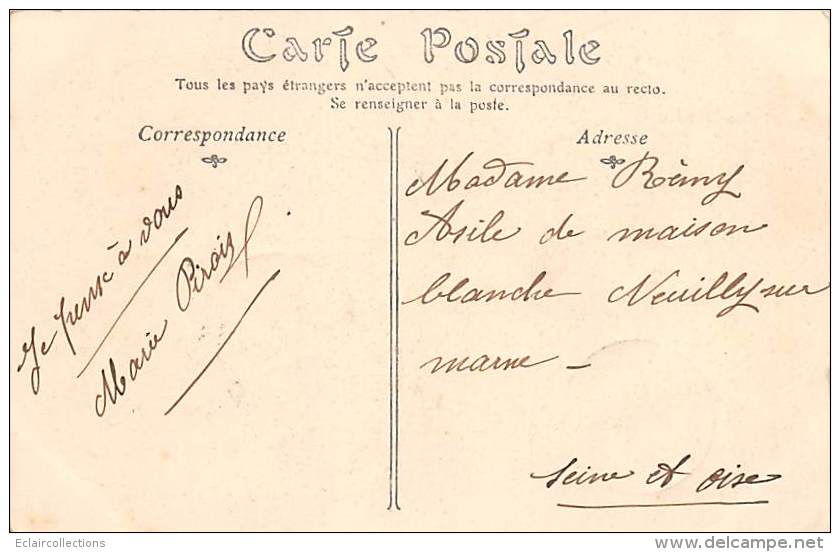 Carte Postale
Tous les pays étrangers n'acceptent pas la correspondance au recto.
Se renseigner à la poste.
Correspondance
Je pense à vous
Marie Pirois
Adresse
Madame Rémy
Asile de maison
blanche Neuilly sur
marne -
Seine et oise
Eclaircollections
www.delcampe.net